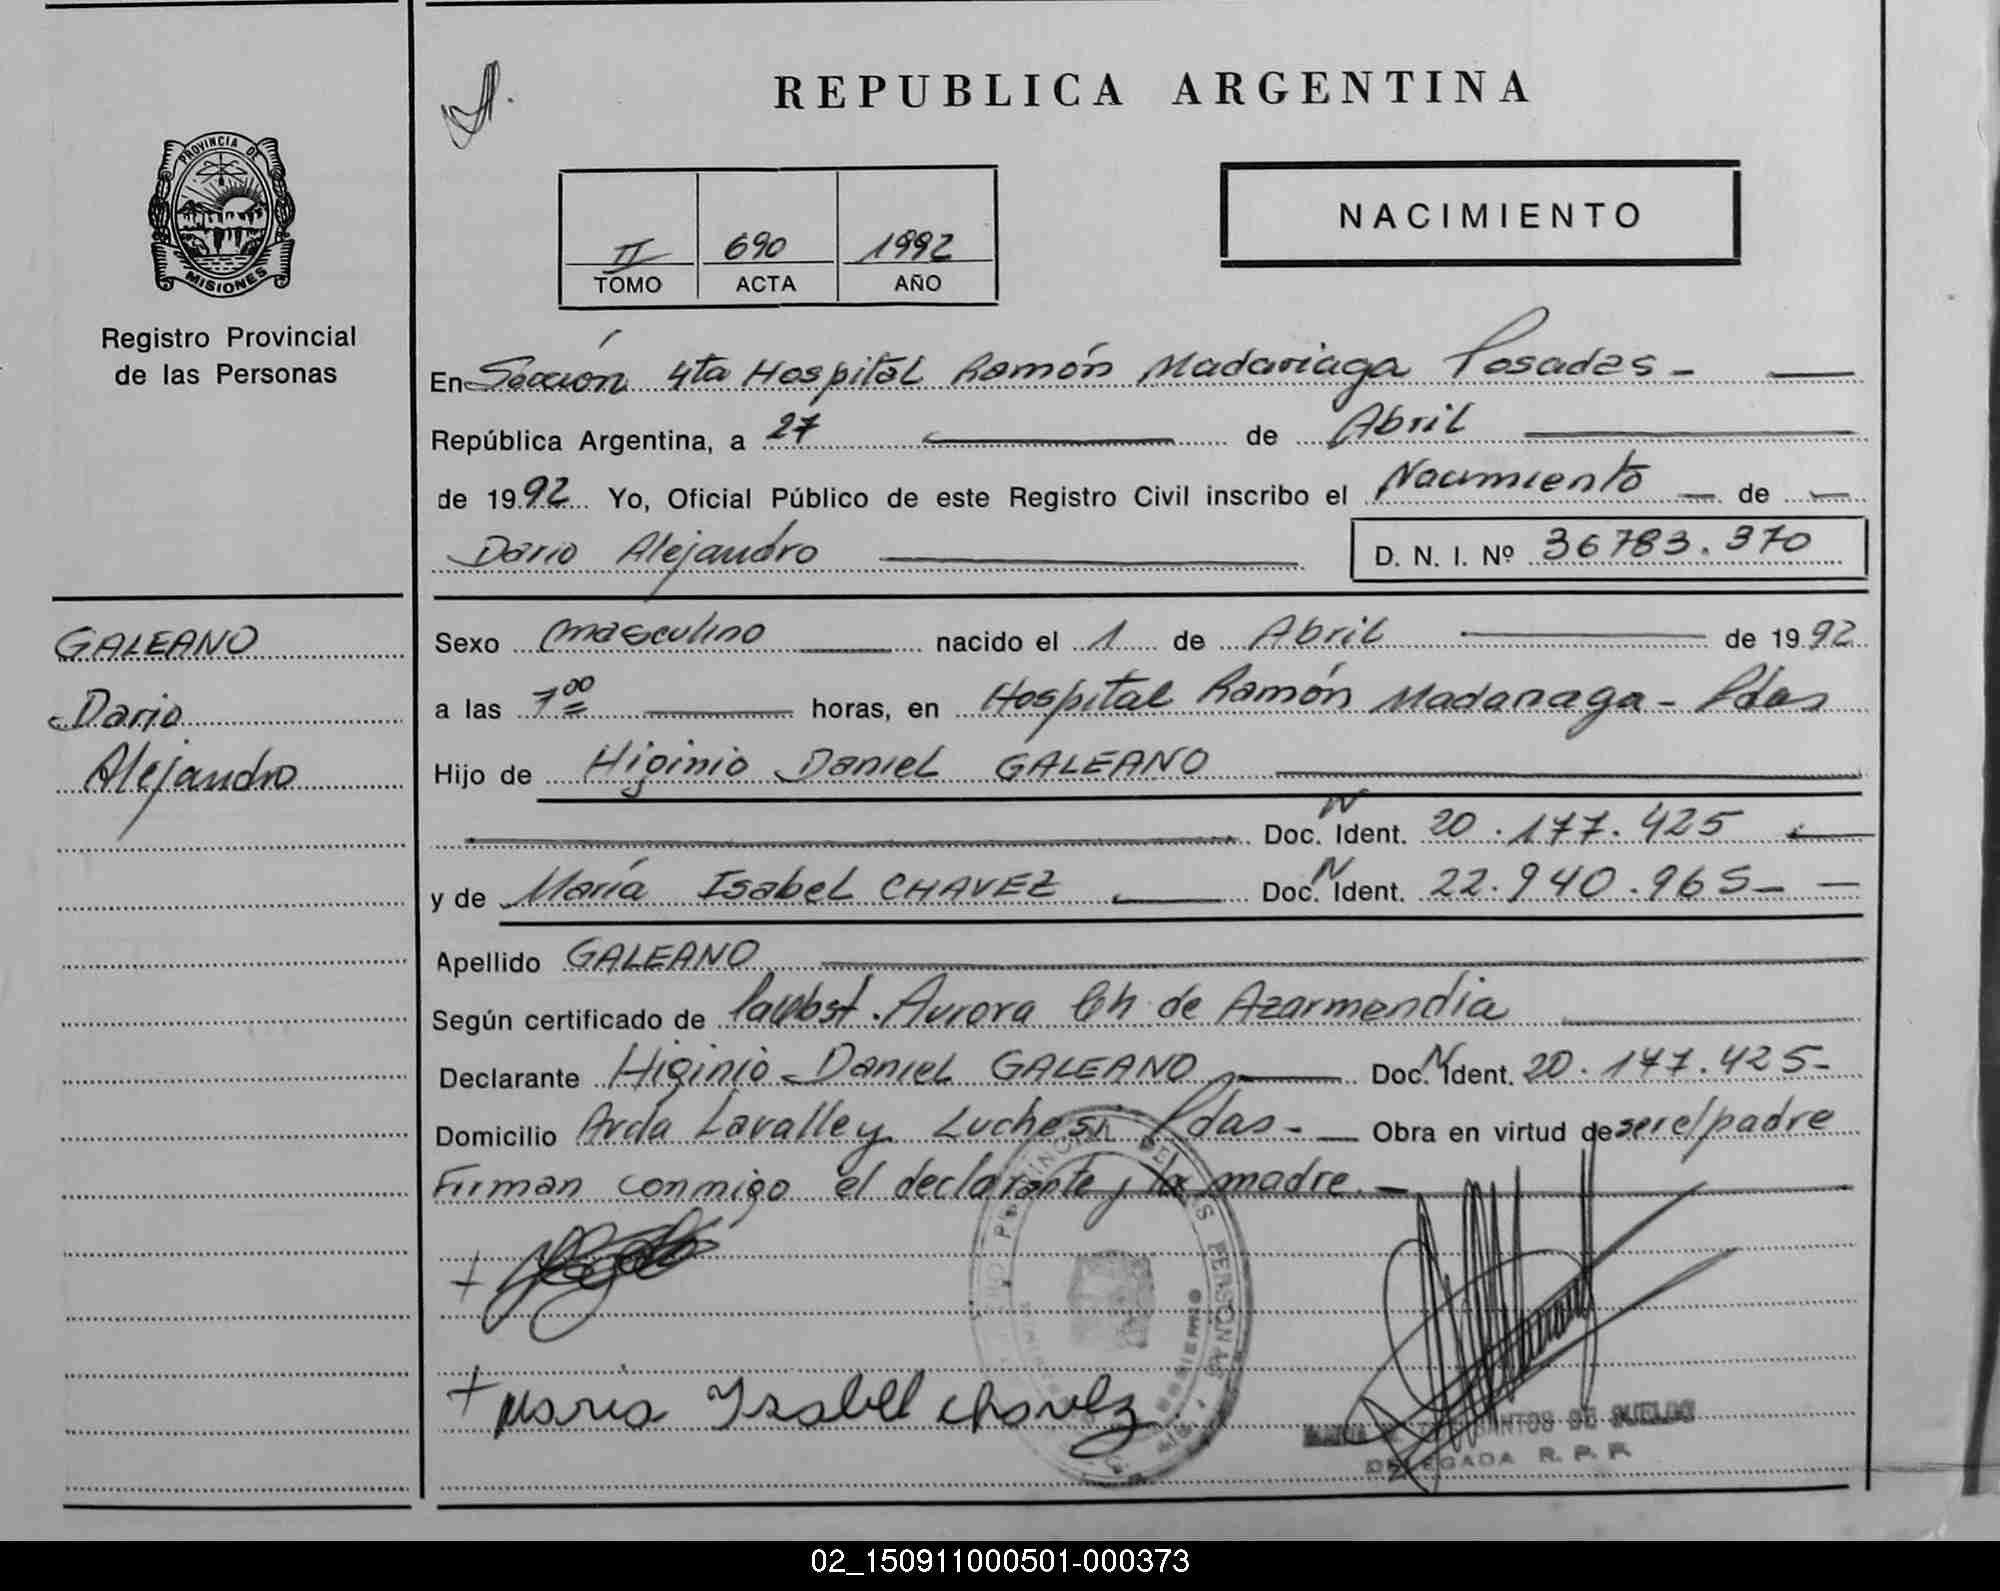 REPUBLICA ARGENTINA
PROVINCIA DE
MISIONES
Registro Provincial
de las Personas
II 690 1992
TOMO ACTA AÑO
NACIMIENTO
En Sección 4ta Hospital Ramón Madariaga Posadas -
República Argentina, a 27 de Abril
de 1992 Yo, Oficial Público de este Registro Civil inscribo el Nacimiento de
Dario Alejandro D. N. I. Nº 36783.370
GALEANO
Dario
Alejandro
Sexo masculino nacido el 1 de Abril de 1992
a las 7 00 horas, en Hospital Ramón Madariaga - Pdas
Hijo de Higinio Daniel GALEANO
Doc. N Ident. 20.177.425
y de María Isabel CHAVEZ Doc. N Ident. 22.940.965 -
Apellido GALEANO
Según certificado de Aurora de Azarmendia
Declarante Higinio Daniel GALEANO Doc. N Ident. 20.177.425 -
Domicilio Avda Lavalle y Luchesi Pdas - Obra en virtud de ser el padre
Firman conmigo el declarante y la madre. -
+
+ Maria Isabel Chavez
SANTOS DE
DELEGADA R. P. P.
02_150911000501-000373